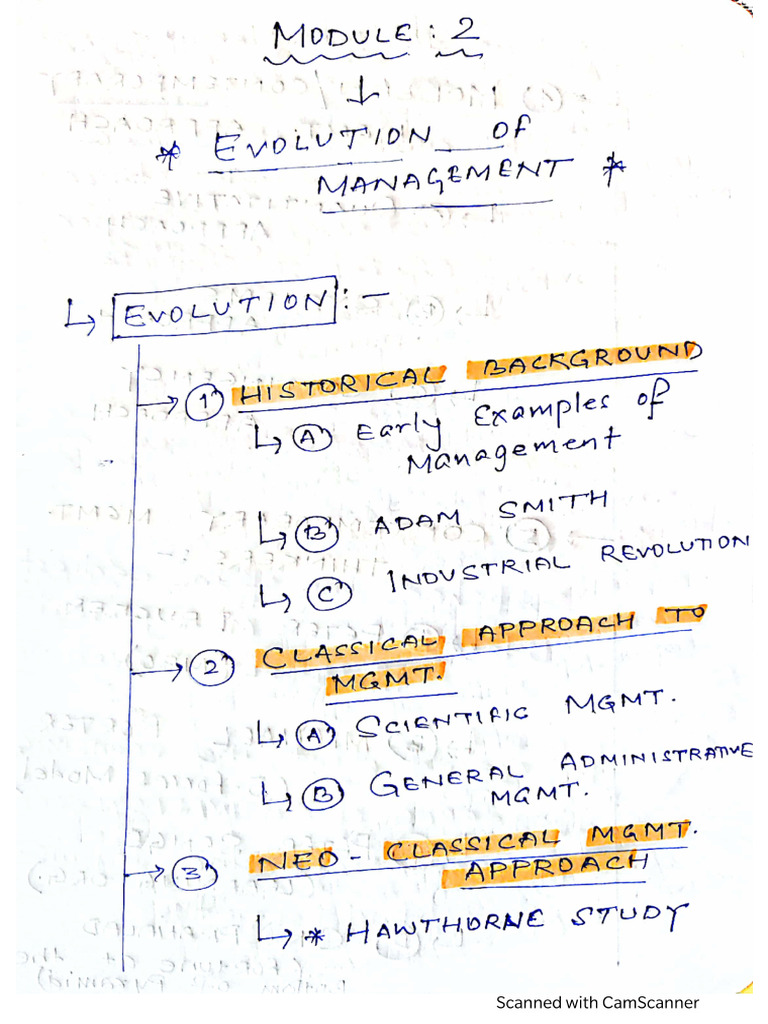 MODULE : 2
* EVOLUTION OF
MANAGEMENT *
EVOLUTION : -
1 HISTORICAL BACKGROUND
A Early Examples of
Management
B ADAM SMITH
C INDUSTRIAL REVOLUTION
2 CLASSICAL APPROACH TO
MGMT.
A SCIENTIFIC MGMT.
B GENERAL ADMINISTRATIVE
MGMT.
3 NEO - CLASSICAL MGMT.
APPROACH
* HAWTHORNE STUDY
Scanned with CamScanner